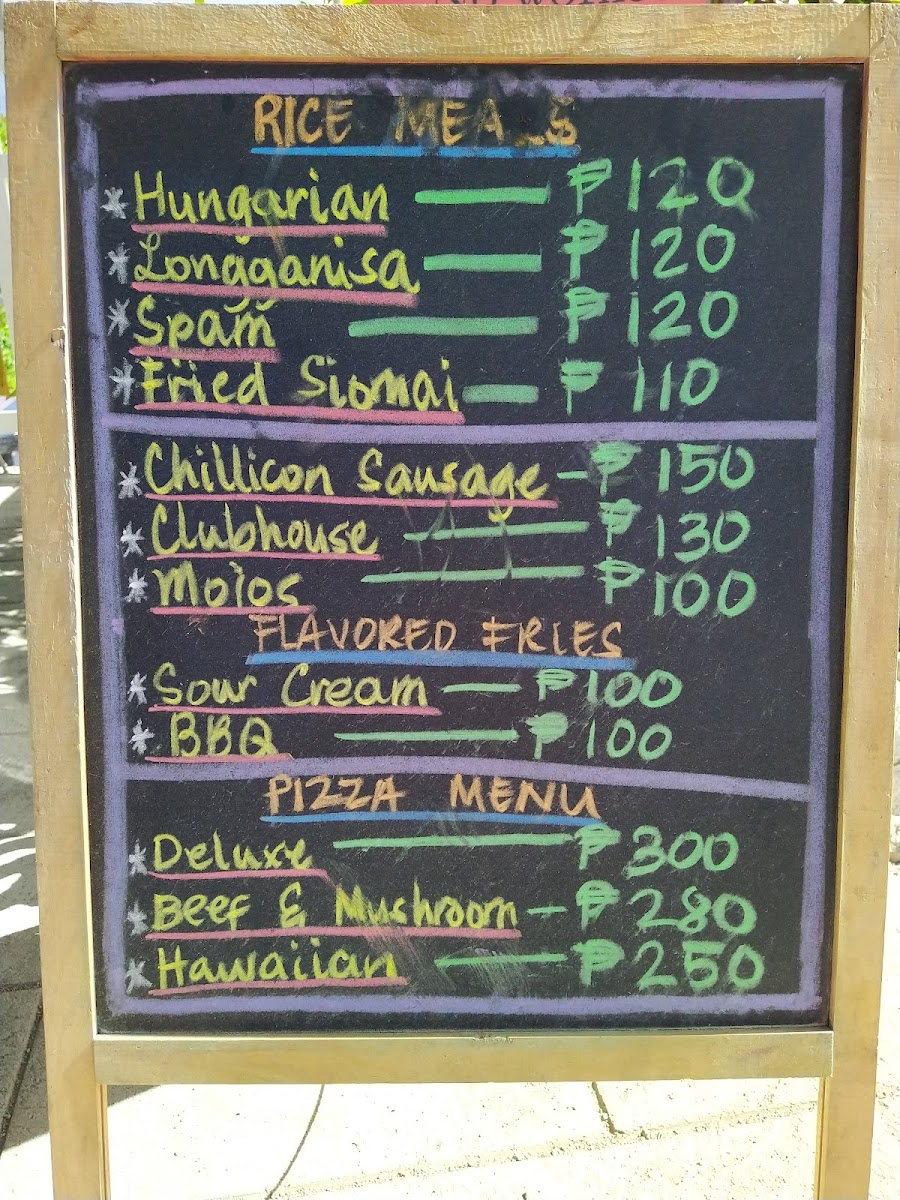 RICE MEALS
* Hungarian — ₱ 120
* Longganisa — ₱ 120
* Spam — ₱ 120
* Fried Siomai — ₱ 110
* Chillicon Sausage — ₱ 150
* Clubhouse — ₱ 130
* Mojos — ₱ 100
FLAVORED FRIES
* Sour Cream — ₱ 100
* BBQ — ₱ 100
PIZZA MENU
* Deluxe — ₱ 300
* Beef & Mushroom — ₱ 280
* Hawaiian — ₱ 250